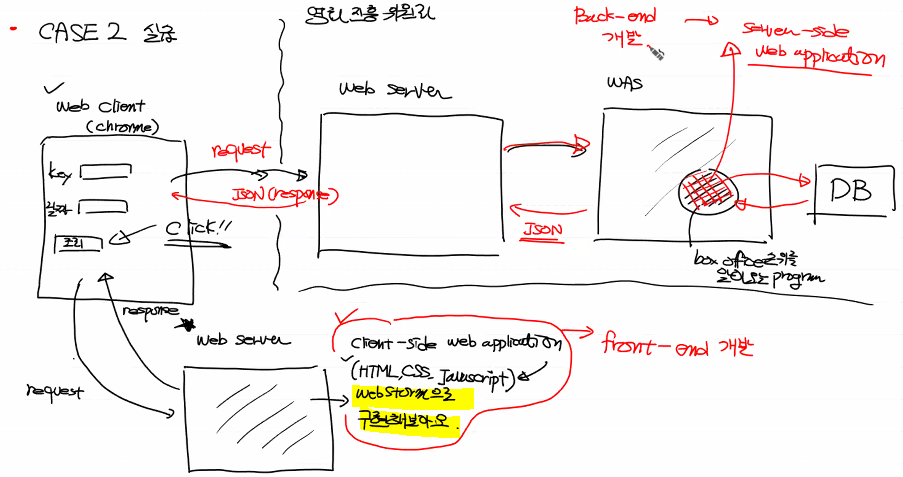 CASE 2 실습
영화진흥위원회
Back-end
개발
server-side
web application
Web Client
(chrome)
Web server
WAS
key
날짜
조회
click!!
request
JSON(response)
JSON
DB
box office순위를
알아오는 program
response
request
Web server
client-side web application
(HTML, CSS, Javascript)
webstorm으로
구현해보아요.
front-end 개발